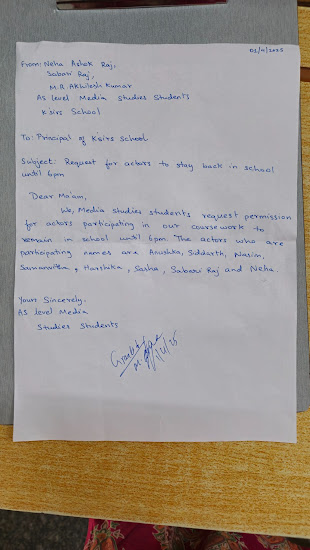 01/11/2025
From: Neha Ashok Raj,
Sabari Raj,
M.R. Akhilesh Kumar
AS level Media Studies Students
Ksirs School
To: Principal of Ksirs School
Subject: Request for actors to stay back in school
until 6pm
Dear Ma'am,
We, Media studies students request permission
for actors participating in our coursework to
remain in school until 6pm. The actors who are
participating names are Anushka, Siddarth, Nasim,
Samanvitha, Harshika, Sasha, Sabari Raj and Neha.
Yours Sincerely,
AS level Media
Studies Students